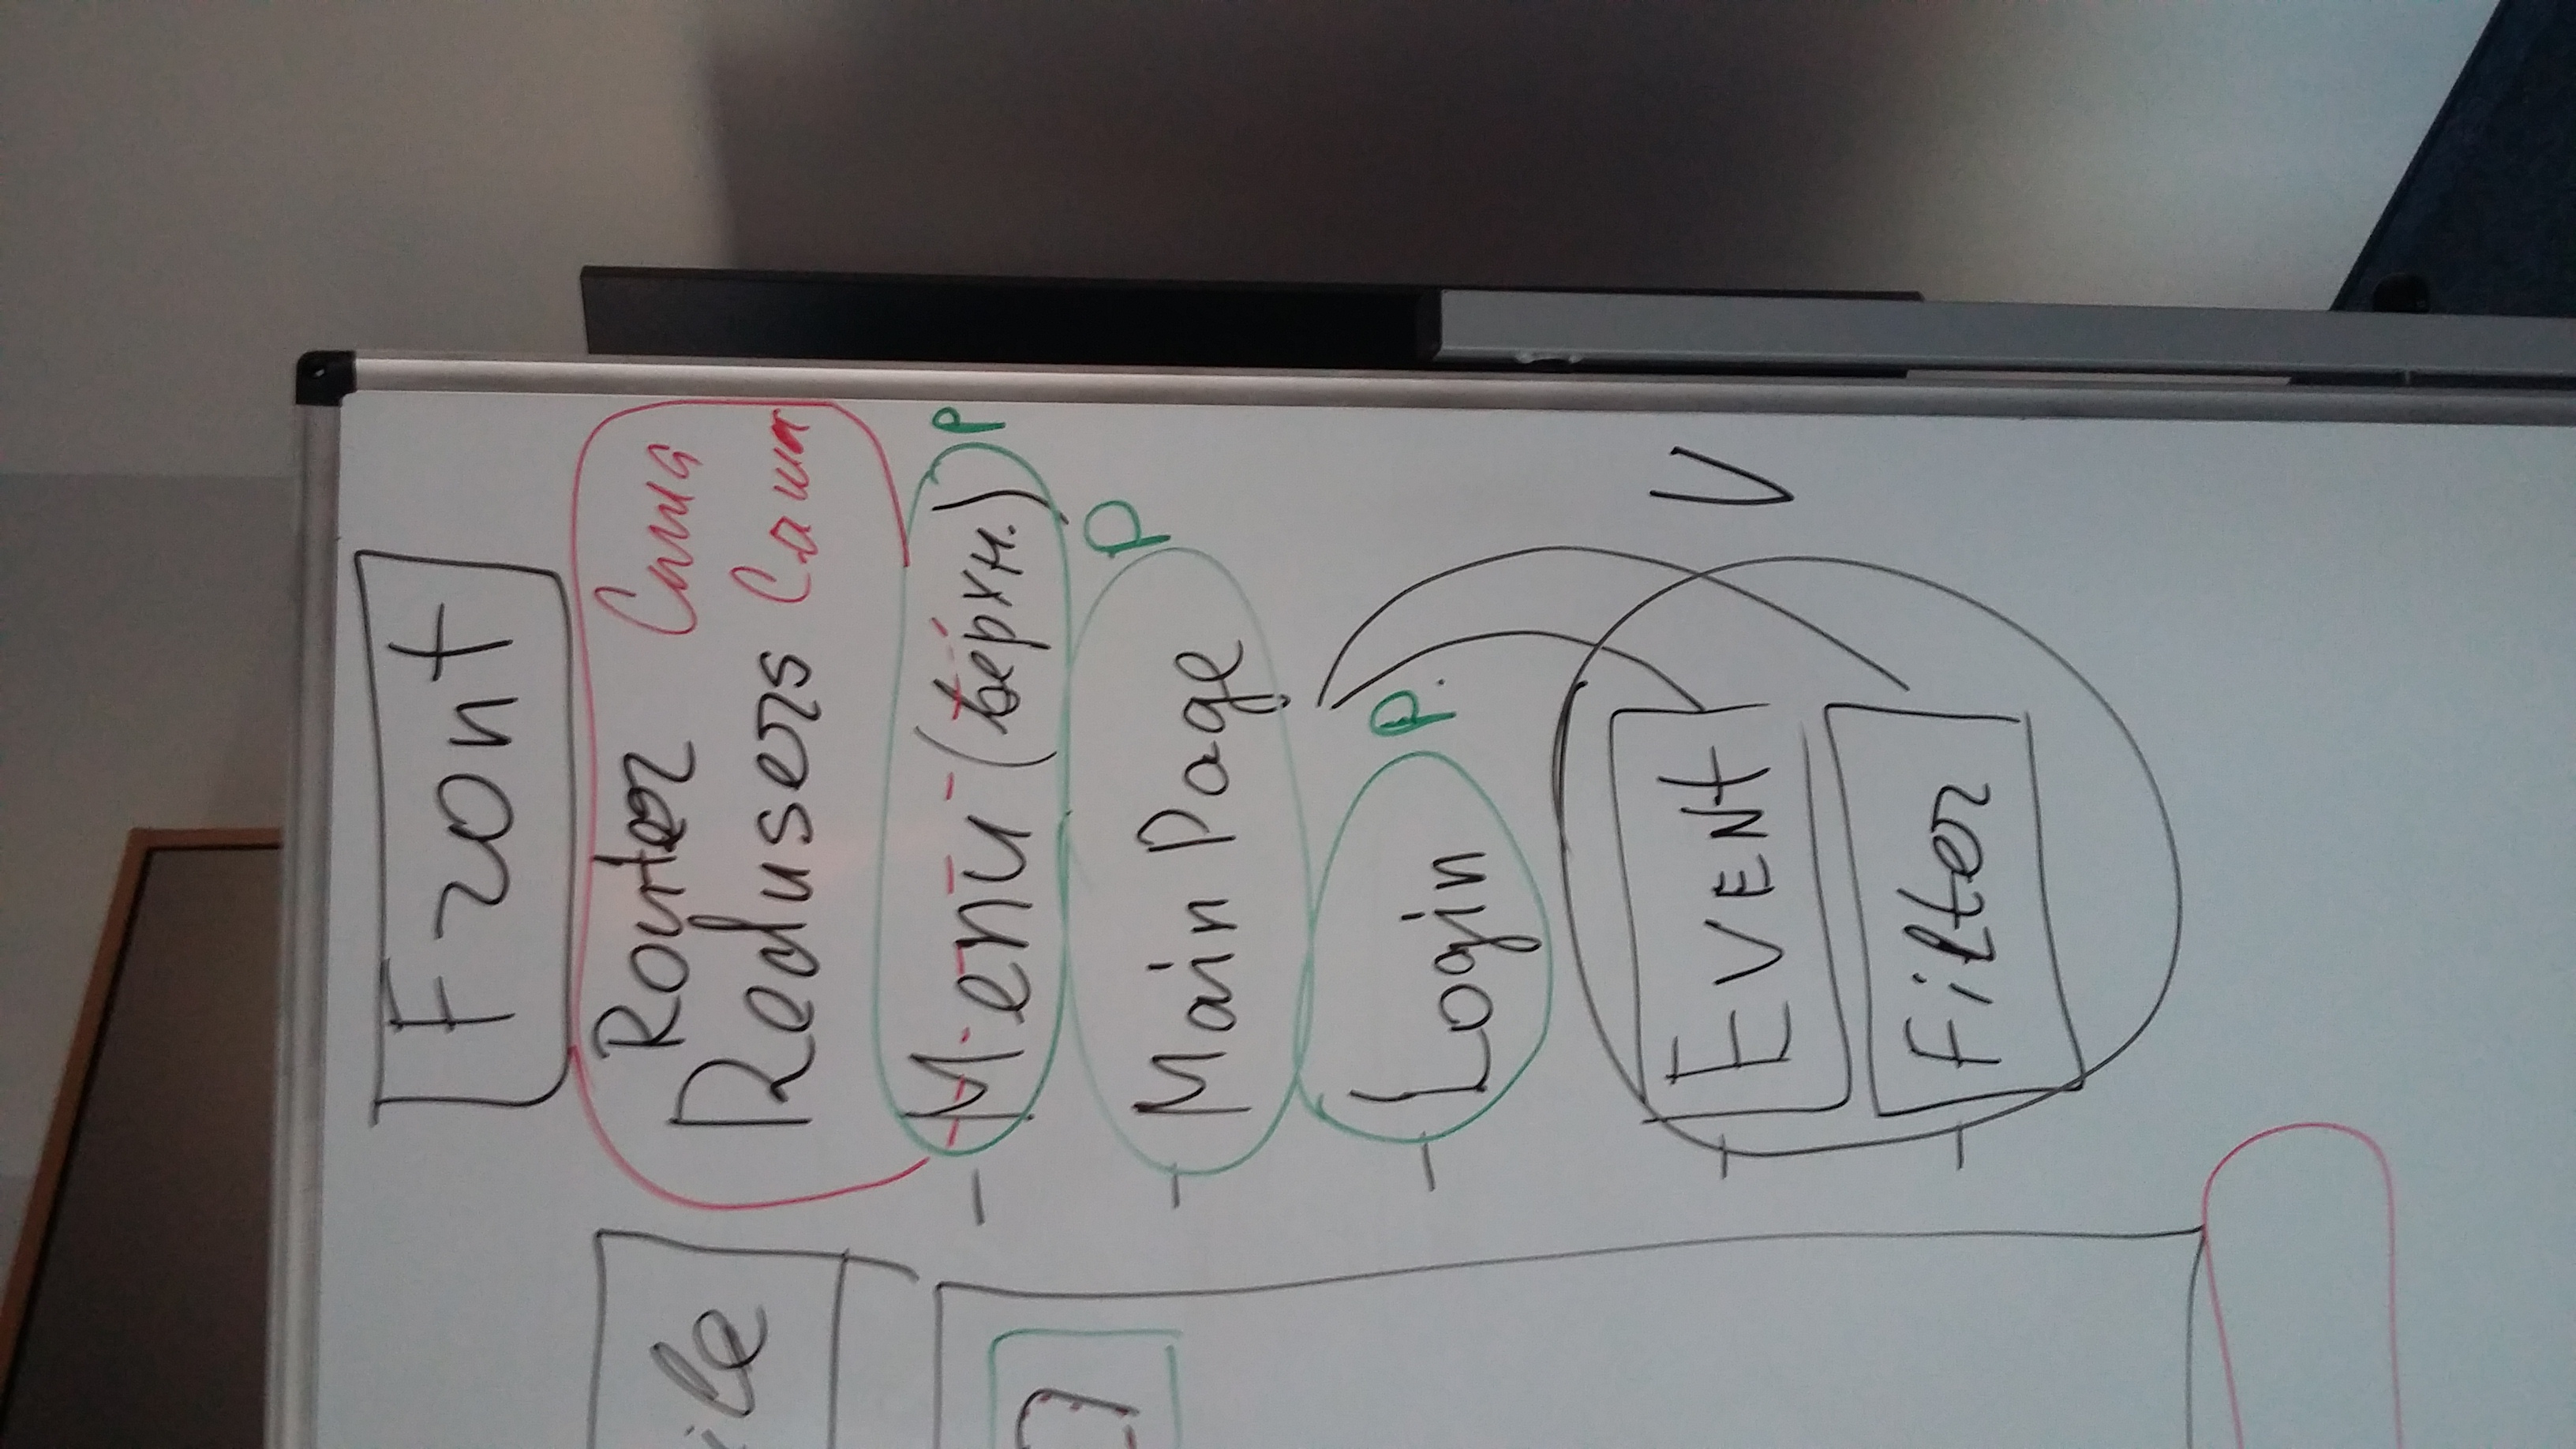 Front
Router Саша
Redusers Саша
ile
- Menu (верхн.) P
- Main Page P
- Login P.
- EVENt V
- Filter